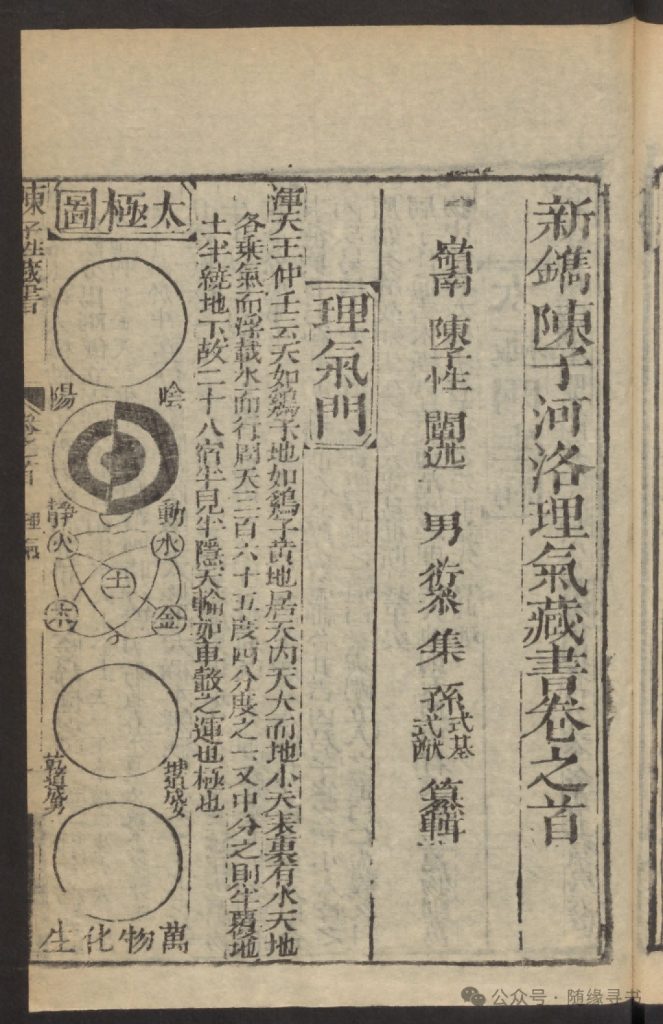 新鐫陳子河洛理氣藏書卷之首
嶺南 陳子性 闡述 男 集 孫 式基 式猷 纂輯
理氣門
渾天王仲壬云天如鷄子地如鷄子黄地居天內天大而地小天表裏有水天地
各乘氣而浮載水而行周天三百六十五度四分度之一又中分之則半覆地
土半繞地下故二十八宿半見半隱天輪如車轂之運也極也
太極圖
陰
陽
動
靜
水
火
土
金
木
坤道成女
乾道成男
萬物化生
陳子性藏書
卷之首
理氣
公众号·随缘寻书